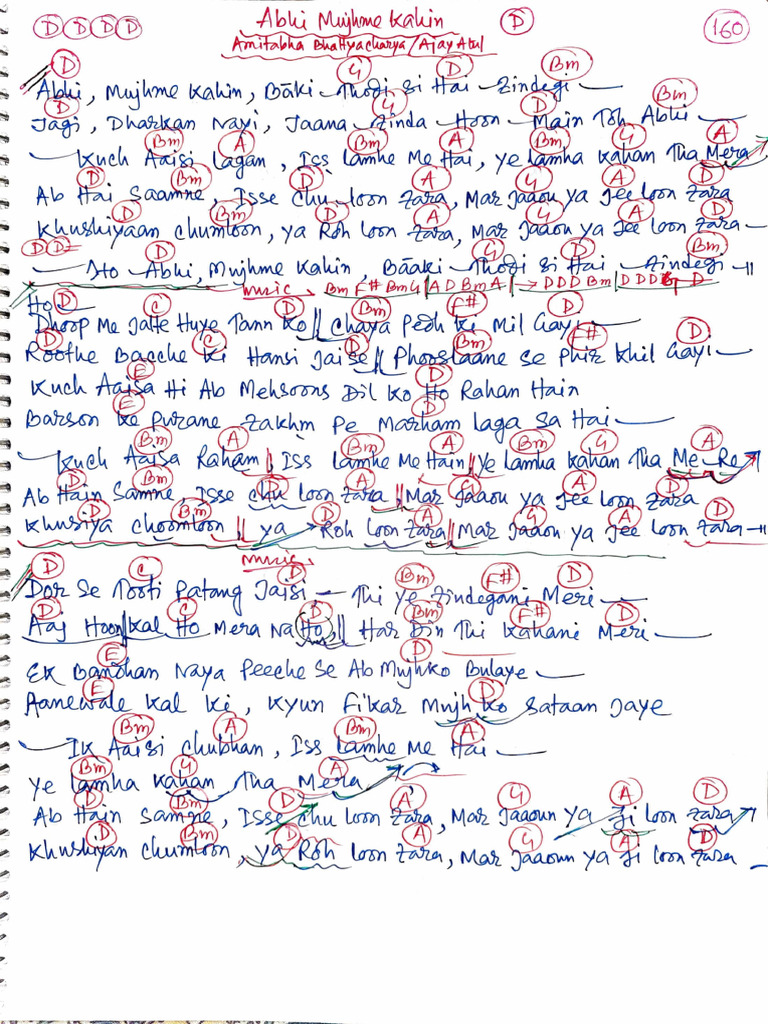 D D D D Abhi Mujhme Kahin D 160
Amitabha Bhattyacharya / Ajay Atul
D G D Bm
Abhi, Mujhme Kahin, Bāki Thodi Si Hai Zindegi
D G D Bm
Jagi, Dharkan Nayi, Jaana Zinda Hoon Main Toh Abhi
Bm A Bm A Bm G A
Kuch Aaisi Lagan, Iss Lamhe Me Hai, Ye Lamha Kahan Tha Mera
D Bm D A G A D
Ab Hai Saamne, Isse Chu Loon Zara, Mar Jaaou Ya Jee Loon Zara
D Bm D A G A D
Khushiyaan Chumloon, Ya Roh Loon Zara, Mar Jaaou Ya Jee Loon Zara
D D D G D Bm
Ho Abhi, Mujhme Kahin, Bāaki Thodi Si Hai Zindegi
music Bm F# Bm G | A D Bm A | → D D D Bm | D D D G D
Ho
D C D Bm F# D
Dhoop Me Jalte Huye Tann Ko || Chaya Pedh Ki Mil Gayi
C D Bm F# D
Roothe Bacche Ki Hansi Jaise || Phooslaane Se Phir Khil Gayi
E D
Kuch Aaisa Hi Ab Mehsoons Dil Ko Ho Rahan Hain
E D
Barson Ke Purane Zakhm Pe Marham Laga Sa Hai
Bm A Bm A Bm G A
Kuch Aaisa Raham | Iss Lamhe Me Hain || Ye Lamha Kahan Tha Me Re
D Bm D A G A D
Ab Hain Samne, Isse Chu Loon Zara || Mar Jaaou Ya Jee Loon Zara
D Bm D A G A D
Khusiya Choomloon || Ya Roh Loon Zara || Mar Jaaou Ya Jee Loon Zara
music
D C D Bm F# D
Dor Se Tooti Patang Jaisi Thi Ye Zindegani Meri
D C D Bm F# D
Aaj Hoon | Kal Ho Mera Na Ho || Har Din Thi Kahani Meri
E D
Ek Bandhan Naya Peeche Se Ab Mujhko Bulaye
E D
Aanewale Kal Ki, Kyun Fikar Mujh Ko Sataan Jaye
Bm A Bm A
Ik Aaisi Chubhan, Iss Lamhe Me Hai
Bm G A
Ye Lamha Kahan Tha Mera
D Bm D A G A D
Ab Hain Samne, Isse Chu Loon Zara, Mar Jaaoun Ya Ji Loon Zara
D Bm D A G A D
Khushiyan Chumloon, Ya Roh Loon Zara, Mar Jaaoun Ya Ji Loon Zara